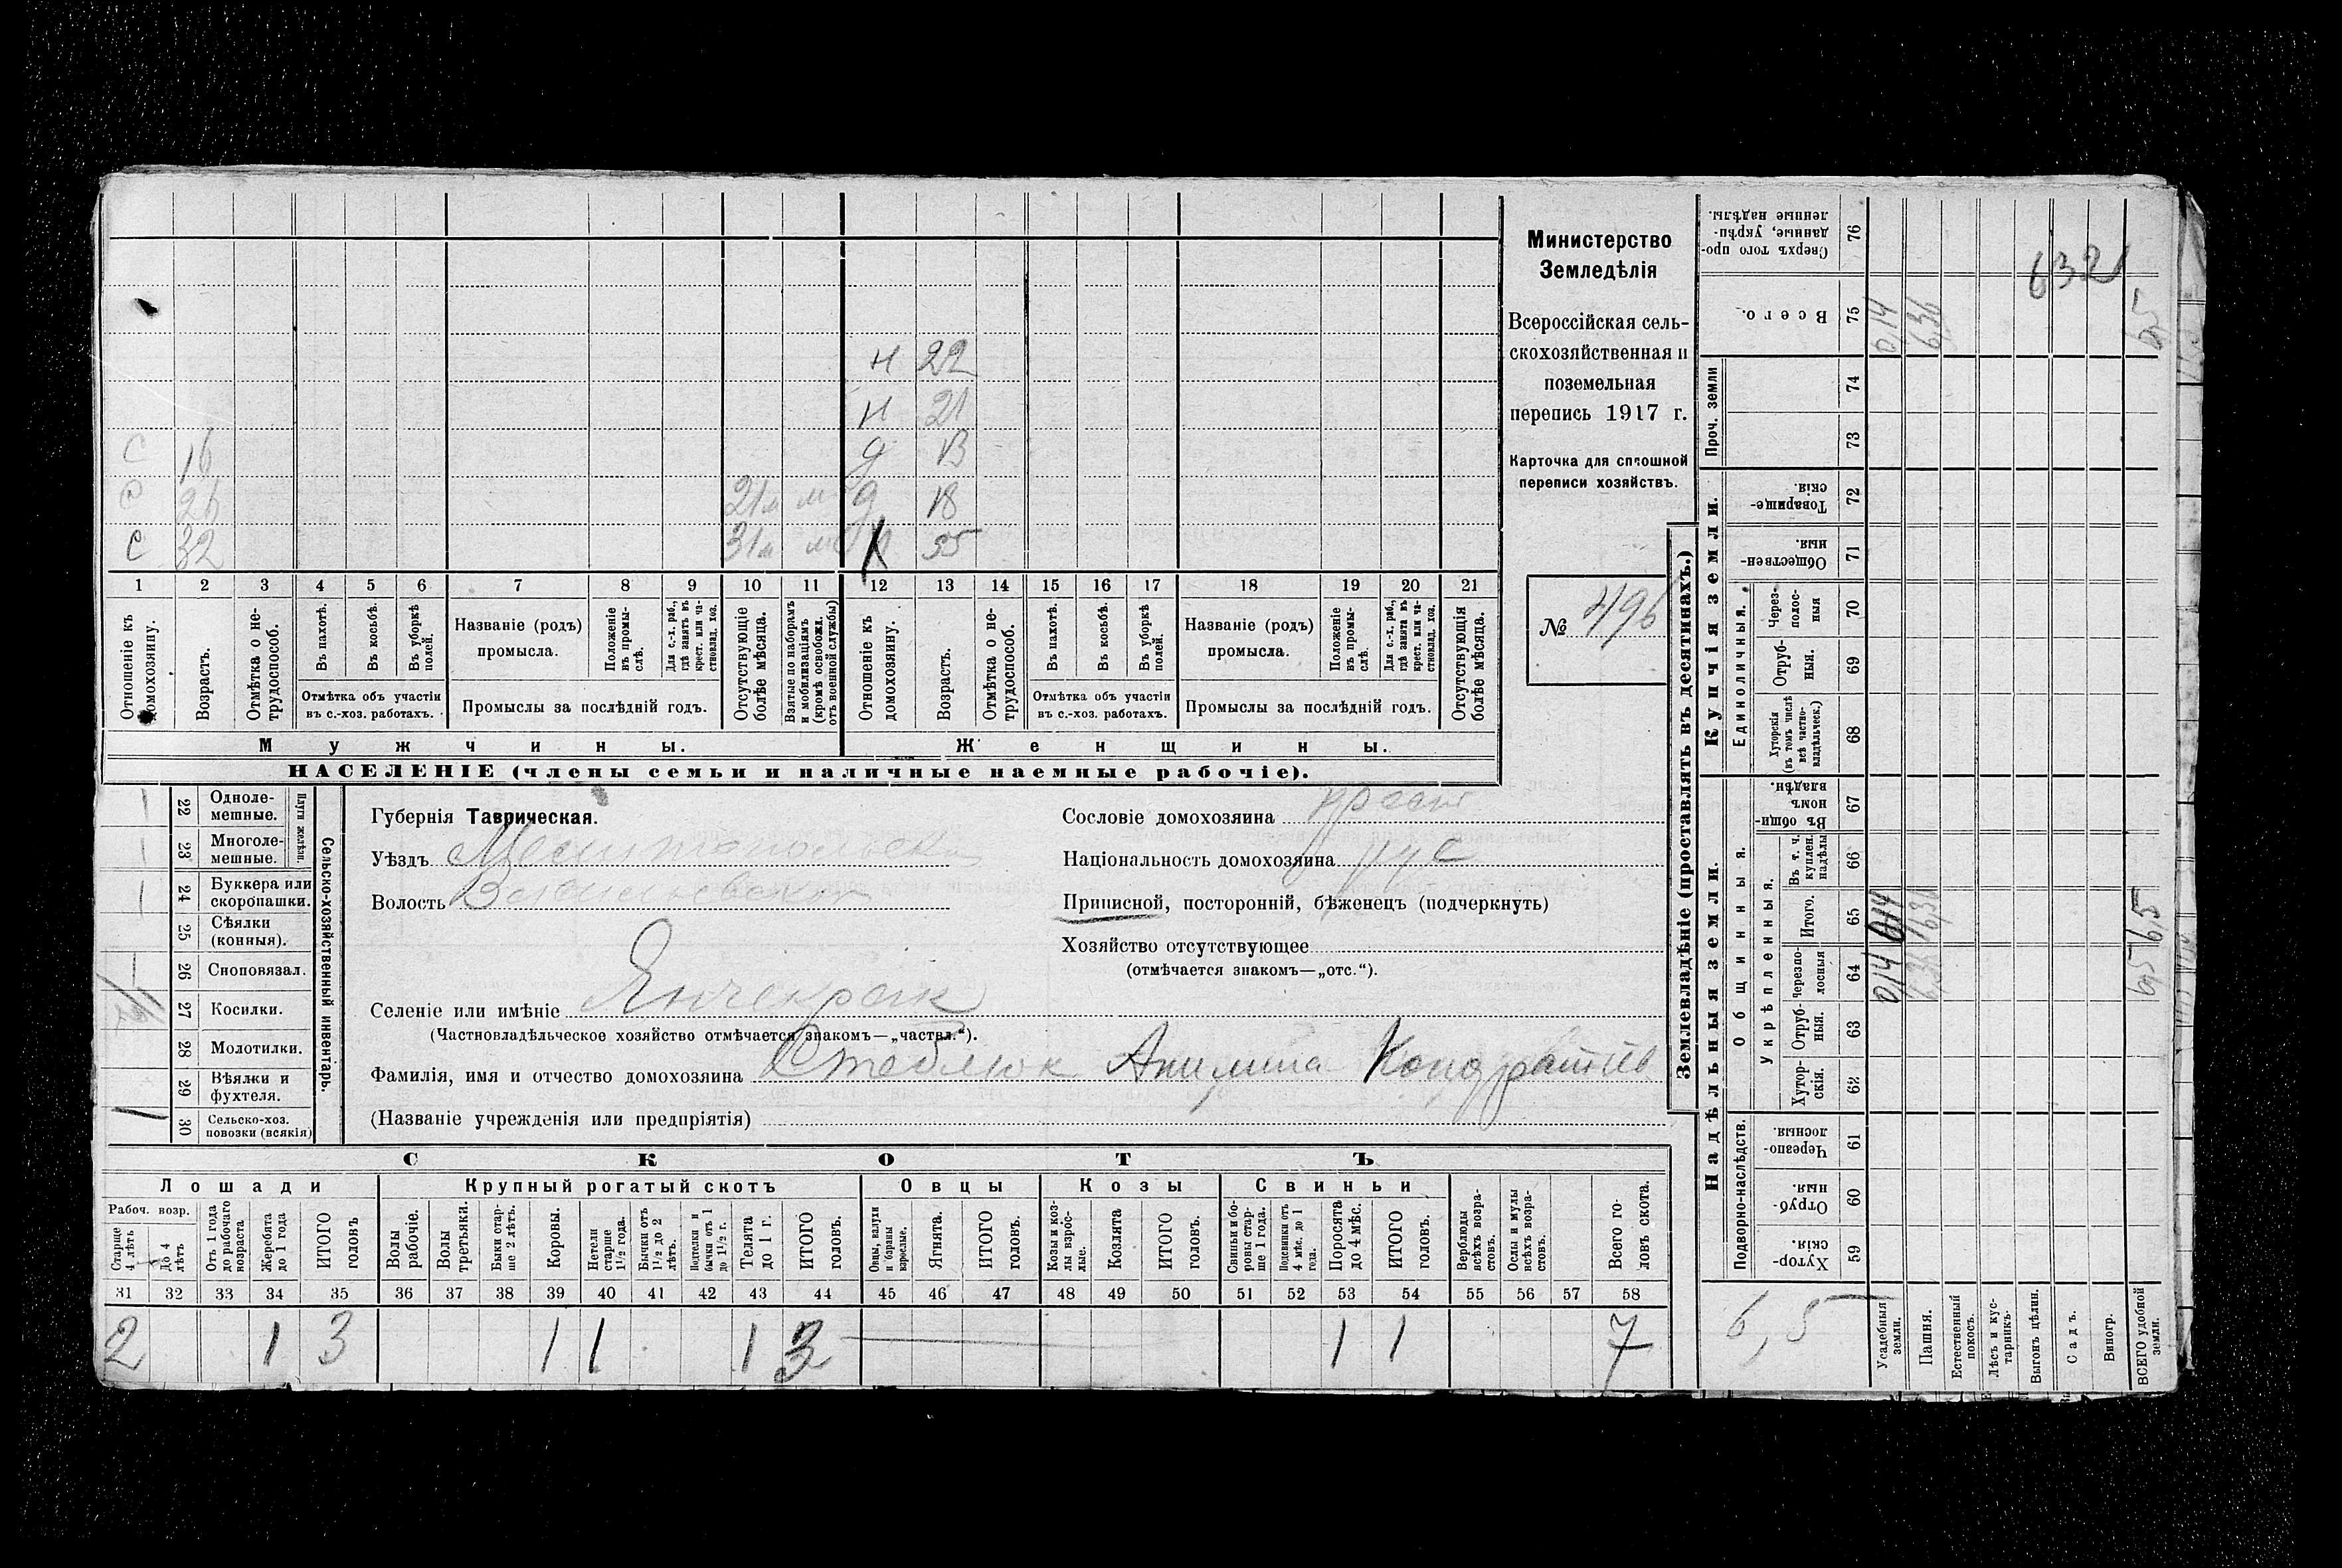 Министерство
Земледѣлія
Всероссійская сель-
скохозяйственная и
поземельная
перепись 1917 г.
Карточка для сплошной
переписи хозяйствъ.
№ 496
н 22
н 21
С 16 д 13
С 26 21м м д 18
С 32 31м м 55
1 2 3 4 5 6 7 8 9 10 11 12 13 14 15 16 17 18 19 20 21
Отношеніе къ домохозяину.
Возрастъ.
Отмѣтка о не-трудоспособ.
Въ пахотѣ.
Въ косьбѣ.
Въ уборкѣ полей.
Отмѣтка объ участіи въ с.-хоз. работахъ.
Названіе (родъ) промысла.
Положеніе въ промы-слѣ.
Для с.-х. раб., гдѣ занятъ въ крест. или ча-стновлад. хоз.
Промыслы за послѣдній годъ.
Отсутствующіе болѣе мѣсяца.
Взятые по наборамъ и мобилизаціямъ (кромѣ освобожд. отъ военной службы)
Отношеніе къ домохозяину.
Возрастъ.
Отмѣтка о не-трудоспособ.
Въ пахотѣ.
Въ косьбѣ.
Въ уборкѣ полей.
Отмѣтка объ участіи въ с.-хоз. работахъ.
Названіе (родъ) промысла.
Положеніе въ промы-слѣ.
Для с.-х. раб., гдѣ занята въ крест. или ча-стновлад. хоз.
Промыслы за послѣдній годъ.
Отсутствующія болѣе мѣсяца.
Мужчины. Женщины.
НАСЕЛЕНІЕ (члены семьи и наличные наемные рабочіе).
Сельско-хозяйственный инвентарь.
Плуги желѣзн.
1 22 Одноле-мешные.
1 23 Многоле-мешные.
1 24 Буккера или скоропашки.
25 Сѣялки (конныя).
26 Сноповязал.
27 Косилки.
28 Молотилки.
29 Вѣялки и фухтеля.
1 30 Сельско-хоз. повозки (всякія)
Губернія Таврическая.
Уѣздъ Мелитопольск
Волость Васильевская
Селеніе или имѣніе Янчекрак
(Частновладѣльческое хозяйство отмѣчается знакомъ—„частвл.“).
Фамилія, имя и отчество домохозяина Стеблюк Кондратьев
(Названіе учрежденія или предпріятія)
Сословіе домохозяина крест
Національность домохозяина рус
Приписной, посторонній, бѣженецъ (подчеркнуть)
Хозяйство отсутствующее
(отмѣчается знакомъ—„отс.“).
СКОТЪ
Лошади Крупный рогатый скотъ Овцы Козы Свиньи
Рабоч. возр.
Старше 4 лѣтъ
До 4 лѣтъ
Отъ 1 года до рабочаго возраста
Жеребята до 1 года
ИТОГО головъ
Волы рабочіе.
Волы третьяки.
Быки стар-ше 2 лѣтъ.
Коровы.
Нетели старше 1½ года.
Бычки отъ 1½ до 2 лѣтъ.
Подтелки и бычки отъ 1 до 1½ г.
Телята до 1 г.
ИТОГО головъ.
Овцы, валухи и бараны взрослые.
Ягнята.
ИТОГО головъ.
Козы и коз-лы взрос-лые.
Козлята
ИТОГО головъ.
Свиньи и бо-ровы стар-ше 1 года.
Подсвинки отъ 4 мѣс. до 1 года.
Поросята до 4 мѣс.
ИТОГО головъ.
Верблюды всѣхъ возра-стовъ.
Ослы и мулы всѣхъ возра-стовъ.
Всего го-ловъ скота.
31 32 33 34 35 36 37 38 39 40 41 42 43 44 45 46 47 48 49 50 51 52 53 54 55 56 57 58
2 1 3 1 1 1 3 1 1 7
Землевладѣніе (проставлять въ десятинахъ.)
Надѣльныя земли. Купчія земли.
Подворно-наслѣдств.
Общинныя.
Укрѣпленныя.
Единоличныя.
Проч. земли
59 Хутор-скія
60 Отруб-ныя.
61 Черезпо-лосныя.
62 Хутор-скія.
63 Отруб-ныя.
64 Черезпо-лосныя
65 Итого.
66 Въ т. ч. куплен. надѣлы
67 Въ общи-номъ владѣн.
68 Хуторскія (въ томъ числѣ всѣ частно-владѣльческ.)
69 Отруб-ныя.
70 Через-полос-ныя
71 Обществен-ныя.
72 Товарище-скія.
73
74
75 Всего.
76 Сверхъ того про-данные, укрѣп-ленные надѣлы.
Усадебныя земли.
Пашня.
Естественный покосъ.
Лѣсъ и кус-тарникъ.
Выгонъ цѣлин.
Садъ.
Виногр.
ВСЕГО удобной земли.
6,5
0,14 0,14 0,14
6,36 6,36 6,36
6,5 6,5 6,5
632